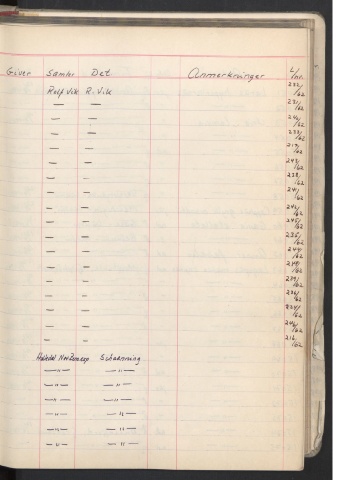 Giver Samler Det Anmerkninger L/nr.
Rolf Vik R. Vik 232/62
— — 231/62
— — 241/62
— — 233/62
— — 217/62
— — 243/62
— — 238/62
— — 241/62
— — 242/62
— — 245/62
— — 235/62
— — 244/62
— — 248/62
— — 239/62
— — 236/62
— — 234/62
— — 246/62
— — 216/62
Schaanning
—"— —"—
—"— —"—
—"— —"—
—"— —"—
—"— —"—
—"— —"—